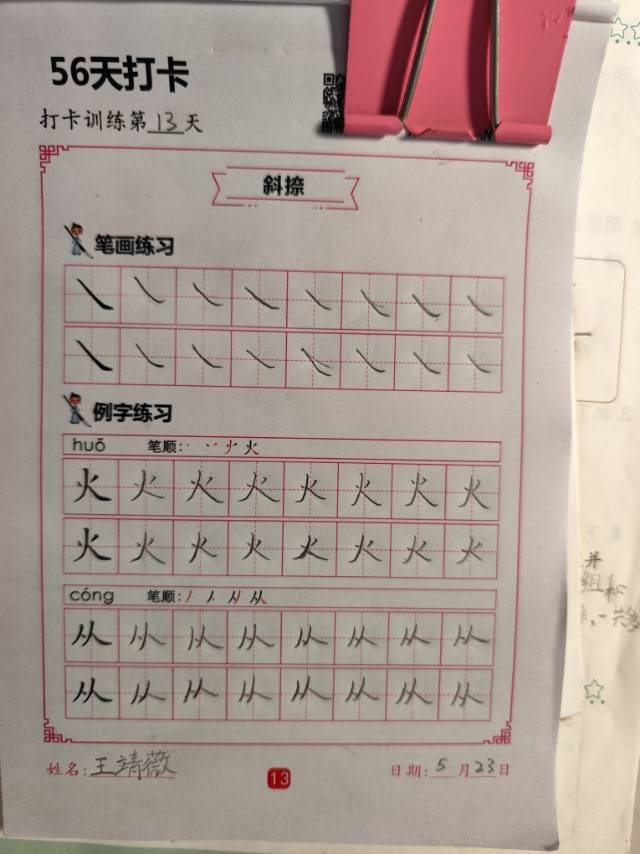 56天打卡
打卡训练第13天
斜捺
笔画练习
例字练习
huǒ 笔顺: 火
火火火火火火火火
火火火火火火火火
cóng 笔顺: 从
从从从从从从从从
从从从从从从从从
姓名:王靖薇 13 日期:5月23日
并
组和
一共多